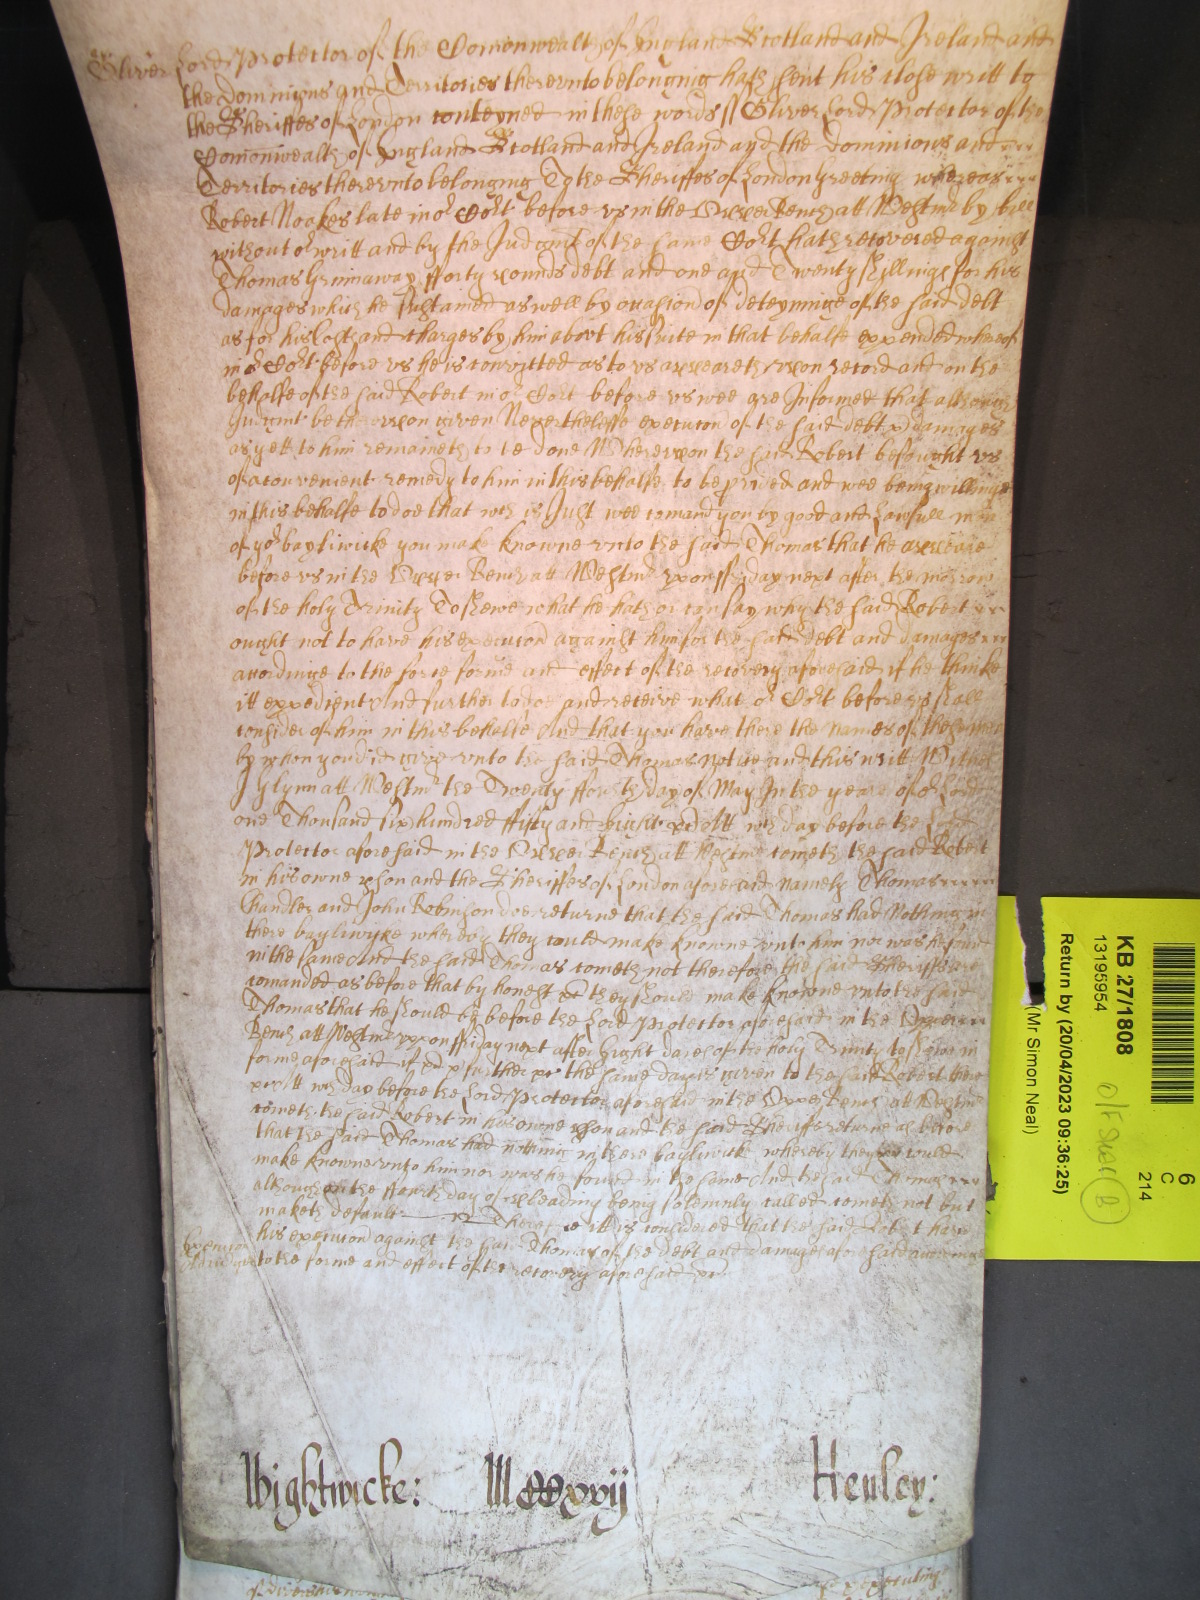 Oliver Lord Protector of the Comonwealth of England Scotland and Ireland and
the Dominions and Territories therevnto belonging hath sent his close writt to
the Sheriffes of London conteyned in these words // Oliver Lord Protector of the
Comonwealth of England Scotland and Ireland and the dominions and
Territories therevnto belonging To the Sheriffes of London Greeting whereas
Robert Noakes late in or Cort before vs in the Vpper Bench att Westmr by bill
without or writt and by the Judgmt of the same Cort hath recovered against
Thomas Grinnaway fforty pounds debt and one and Twenty shillings for his
damages which he sustained as well by occasion of deteyninge of the said debt
as for his Costs and charges by him about his suite in that behalfe expended whereof
in or Cort before vs he is convicted as to vs appeareth vpon record and on the
behalfe of the said Robert in or Cort before vs wee are Informed that although
Judgmt be therevpon given Neverthelesse execucon of the said debt & damages
as yett to him remaineth to be done Wherevpon the said Robert besought vs
of a convenient remedy to him in this behalfe to be p'vided and wee being willinge
in this behalfe to doe that wch is Just wee comand you by good and Lawfull men
of yor bayliwicke you make knowne vnto the said Thomas that he appeare
before vs in the Vpper Bench att Westmr vpon ffriday next after the morrow
of the holy Trinity To shewe what he hath or can say why the said Robert
ought not to have his execucon against him for the said debt and damages
accordinge to the force forme and effect of the recovery aforesaid if he thinke
itt expedient And further to doe and receive what or Cort before vs shall
consider of him in this behalfe And that you have there the names of these men
by whon you did give vnto the said Thomas notice and this writt Witnes
J Glynn att Westmr the Twenty ffourth day of May In the yeare of or Lord
one Thousand six hundred ffifty and Eight att wch day before the Lord
Protector aforesaid in the Vpper Bench att Westmr cometh the said Robert
in his owne pson and the Sheriffes of London aforesaid namely Thomas
Chandler and John Robinson doe returne that the said Thomas had Nothing in
there bayliwyke whereby they could make knowne vnto him nor was he found
in the same And the said Thomas cometh not therefore the said Sheriffs are
comanded as before that by honest &c they should make knowne vnto the said
Thomas that he should be before the Lord Protector aforesaid in the Vpper
Bench att Westmr vpon ffriday next after Eight dayes of the holy Trinity to shewe in
forme aforesaid if &c & further &c the same day is given to the said Robert there
&c att wch day before the Lord Protector aforesaid in the Vpper Bench att Westmr
cometh the said Robert in his owne pson and the said Sheriffs returne as before
that the said Thomas had nothing in there bayliwicke whereby they could
make knowne vnto him nor was he found in the same And the said Thomas
although on the ffourth day of pleading being solemnly called cometh not but
maketh default Therefore itt is considered that the said Robert have
his execucon against the said Thomas of the debt and damages aforesaid accordinge
to the forme and effect of the recovery aforesaid &c
Execucon
Wightwicke: MCCxvij Henley:
KB 27/1808
13195954
Return by (20/04/2023 09:36:25)
(Mr Simon Neal)
6
C
214